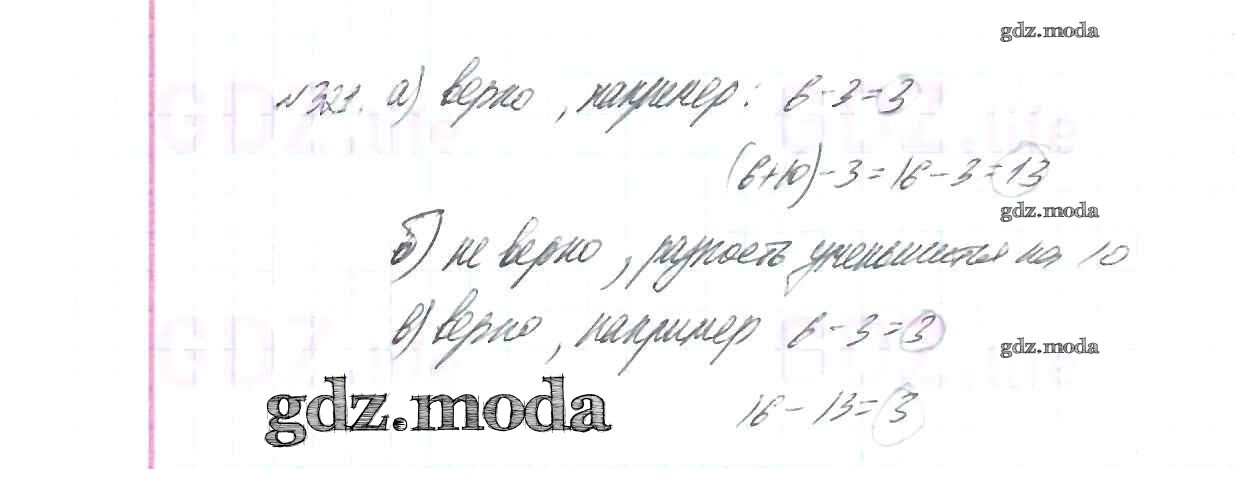 gdz.moda
№321. а) верно, например: 6-3=3
(6+10)-3=16-3=13
gdz.moda
б) не верно, разность уменьшится на 10
в) верно, например 6-3=3
gdz.moda
gdz.moda
16-13=3
GDZ.life
GDZ.life
GDZ.life
GDZ.life